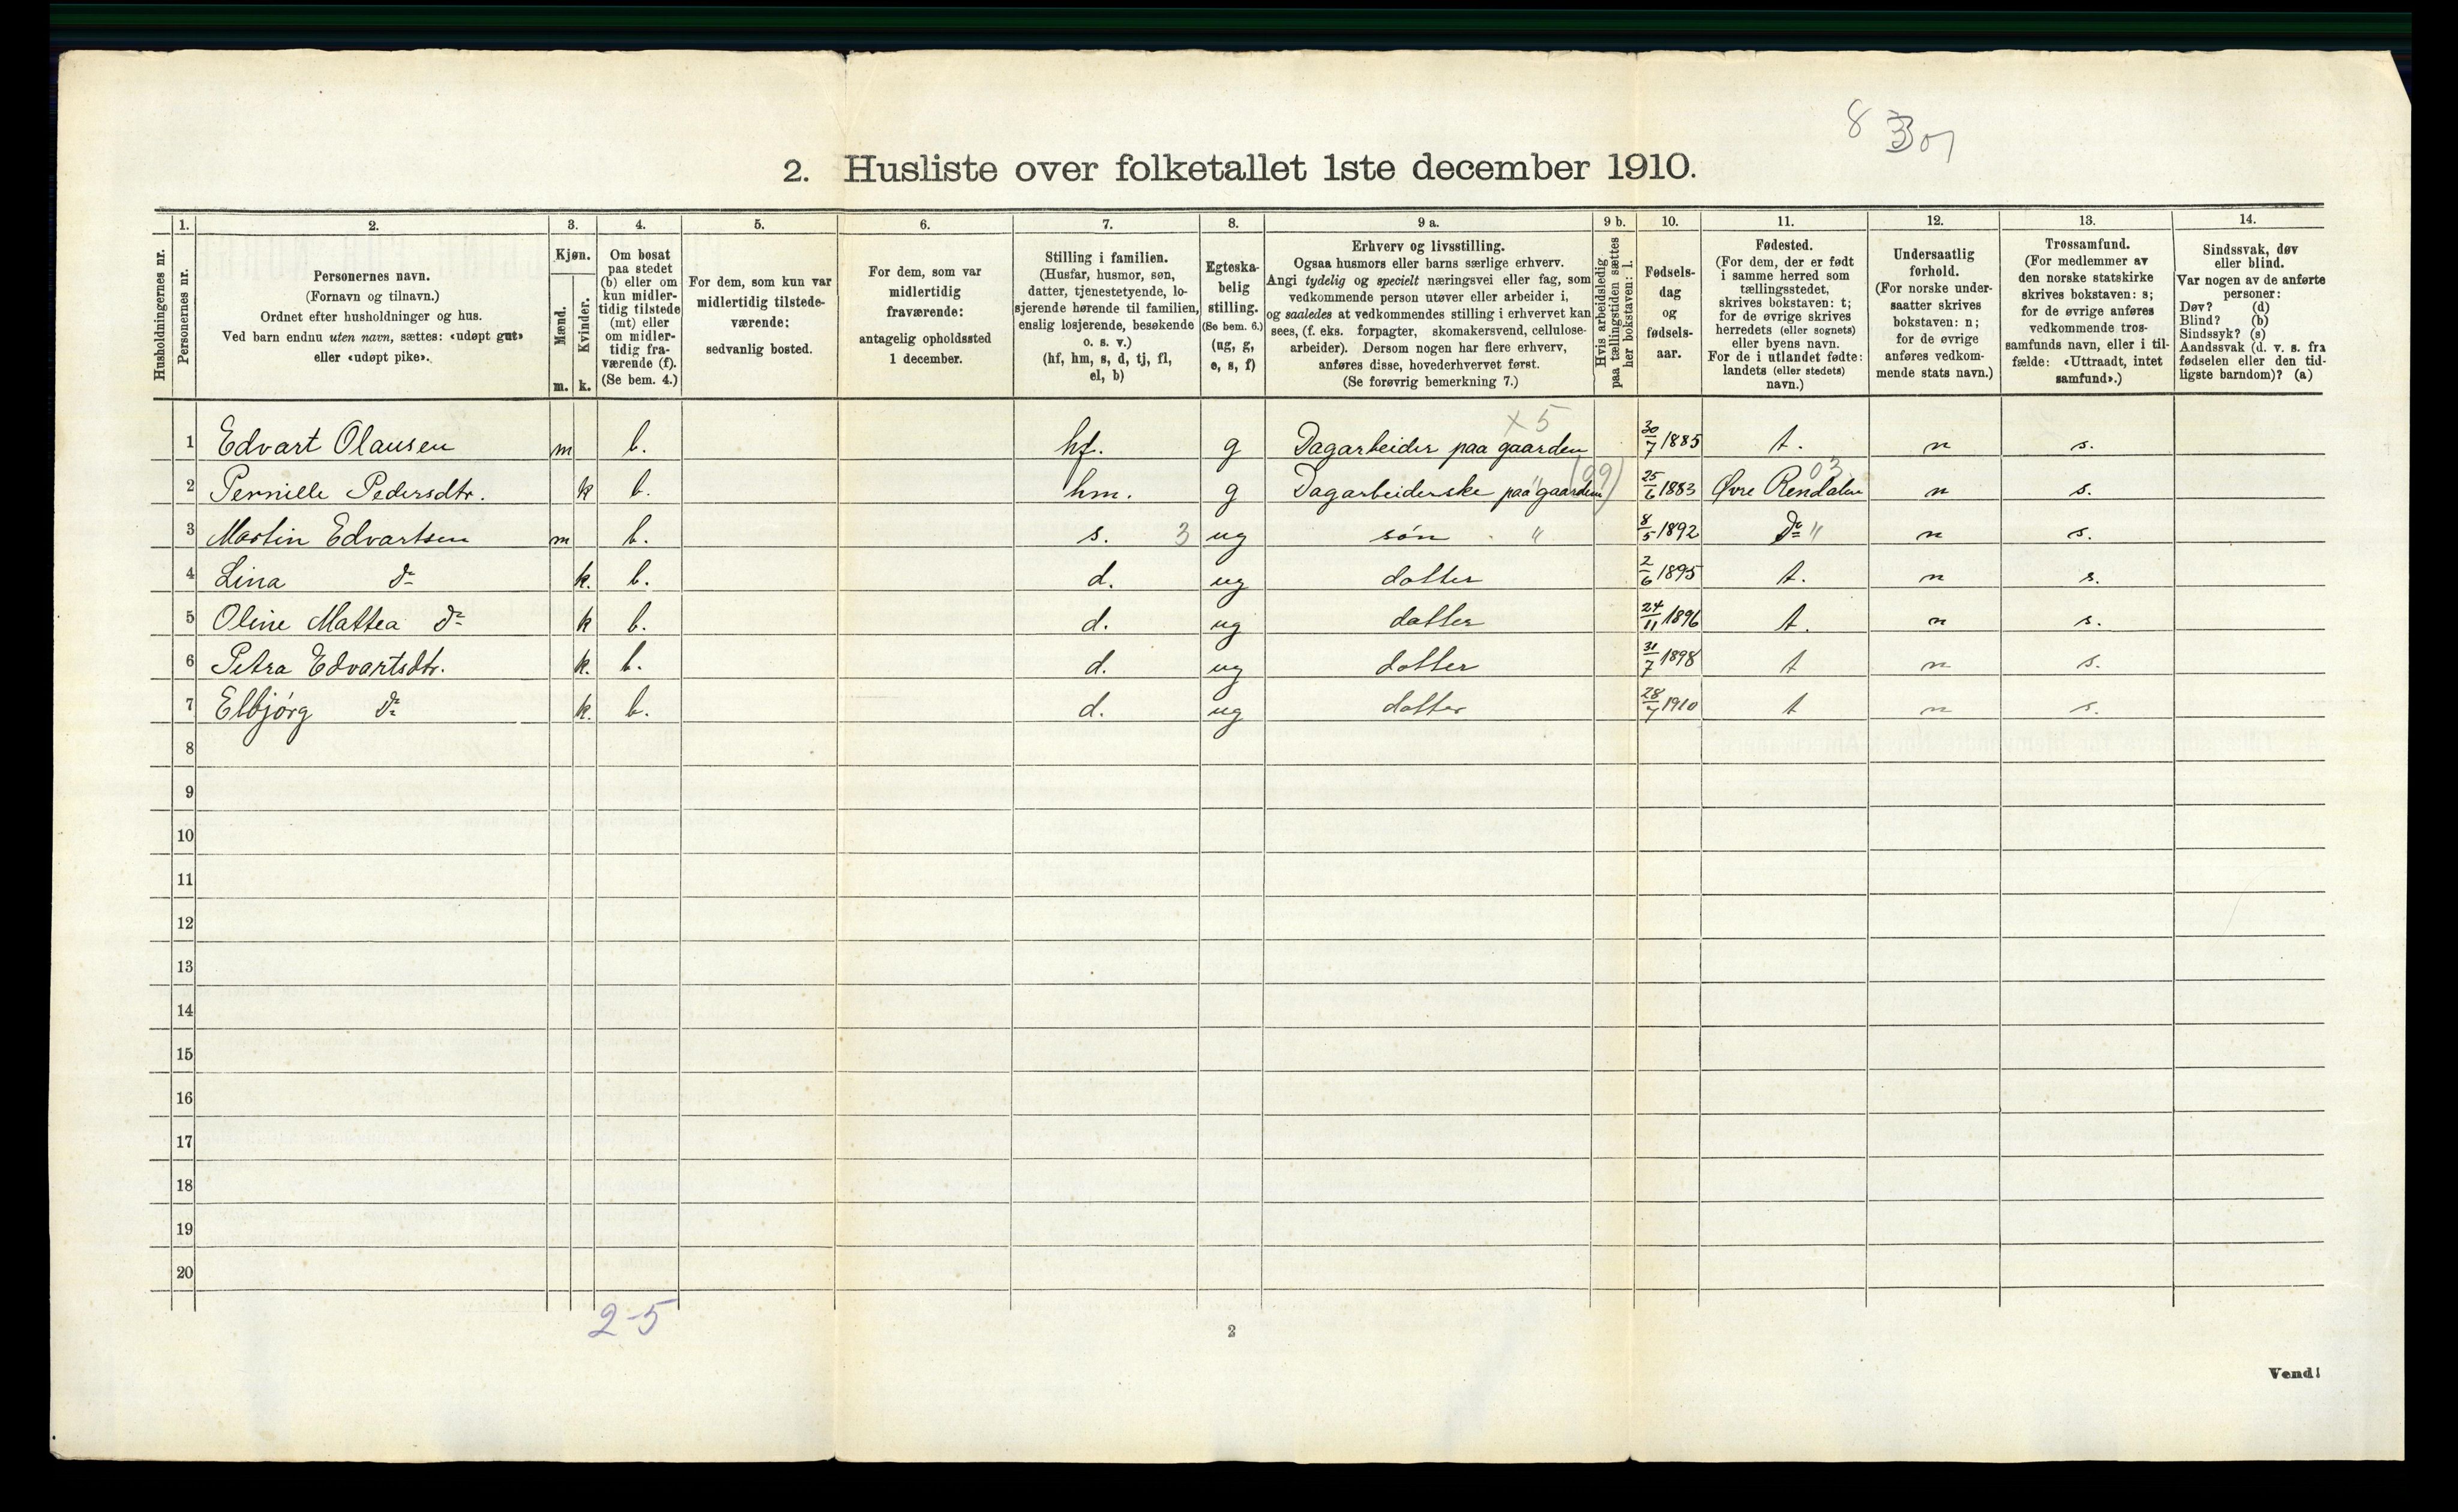 8 3 07
2. Husliste over folketallet 1ste december 1910.
Husholdningernes nr.
1.
Personernes nr.
2.
Personernes navn.
(Fornavn og tilnavn.)
Ordnet efter husholdninger og hus.
Ved barn endnu uten navn, sættes: «udøpt gut»
eller «udøpt pike».
3.
Kjøn.
Mænd.
m.
Kvinder.
k.
4.
Om bosat
paa stedet
(b) eller om
kun midler-
tidig tilstede
(mt) eller
om midler-
tidig fra-
værende (f).
(Se bem. 4.)
5.
For dem, som kun var
midlertidig tilstede-
værende:
sedvanlig bosted.
6.
For dem, som var
midlertidig
fraværende:
antagelig opholdssted
1 december.
7.
Stilling i familien.
(Husfar, husmor, søn,
datter, tjenestetyende, lo-
sjerende hørende til familien,
enslig losjerende, besøkende
o. s. v.)
(hf, hm, s, d, tj, fl,
el, b)
8.
Egteska-
belig
stilling.
(Se bem. 6.)
(ug, g,
e, s, f)
9 a.
Erhverv og livsstilling.
Ogsaa husmors eller barns særlige erhverv.
Angi tydelig og specielt næringsvei eller fag, som
vedkommende person utøver eller arbeider i,
og saaledes at vedkommendes stilling i erhvervet kan
sees, (f. eks. forpagter, skomakersvend, cellulose-
arbeider). Dersom nogen har flere erhverv,
anføres disse, hovederhvervet først.
(Se forøvrig bemerkning 7.)
9 b.
Hvis arbeidsledig
paa tællingstiden sættes
her bokstaven: l.
10.
Fødsels-
dag
og
fødsels-
aar.
11.
Fødested.
(For dem, der er født
i samme herred som
tællingsstedet,
skrives bokstaven: t;
for de øvrige skrives
herredets (eller sognets)
eller byens navn.
For de i utlandet fødte:
landets (eller stedets)
navn.)
12.
Undersaatlig
forhold.
(For norske under-
saatter skrives
bokstaven: n;
for de øvrige
anføres vedkom-
mende stats navn.)
13.
Trossamfund.
(For medlemmer av
den norske statskirke
skrives bokstaven: s;
for de øvrige anføres
vedkommende tros-
samfunds navn, eller i til-
fælde: «Uttraadt, intet
samfund».)
14.
Sindssvak, døv
eller blind.
Var nogen av de anførte
personer:
Døv? (d)
Blind? (b)
Sindssyk? (s)
Aandssvak (d. v. s. fra
fødselen eller den tid-
ligste barndom)? (a)
1 Edvart Olausen m b. hf. g Dagarbeider paa gaarden x 5 30/7 1885 t. n s.
2 Pernille Pedersdtr. k b. hm. g Dagarbeiderske paa gaarden (99) 25/6 1883 Øvre Rendalen 03 n s.
3 Martin Edvartsen m b. s. 3 ug søn " 8/5 1892 do " n s.
4 Lina do k. b. d. ug datter 2/6 1895 t. n s.
5 Oline Mattea do k b. d. ug datter 24/11 1896 t. n s.
6 Petra Edvartsdtr. k. b. d. ug datter 31/7 1898 t n s.
7 Elbjørg do k. b. d. ug datter 28/7 1910 t n s.
8
9
10
11
12
13
14
15
16
17
18
19
20
2-5
2
Vend!